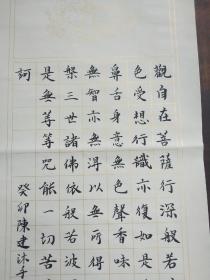 觀自在菩薩行深般若
色受想行識亦復如是
鼻舌身意無色聲香味
無智亦無得以無所得
槃三世諸佛依般若波
是無等等咒能一切苦
訶
癸卯陳建沐手